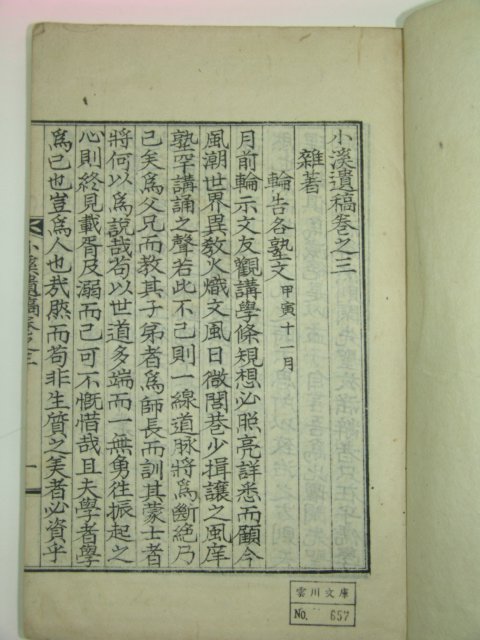 小溪遺稿卷之三
雜著
輪告各塾文 甲寅十一月
月前輪示文友觀講學條規想必照亮詳悉而顧今
風潮世界異敎火熾文風日微閭巷少揖讓之風庠
塾罕講誦之聲若此不已則一線道脉將爲斷絶乃
已矣爲父兄而敎其子弟者爲師長而訓其蒙士者
將何以爲說哉苟以世道多端而一無勇往振起之
心則終見載胥及溺而已可不慨惜哉且夫學者學
爲己也豈爲人也哉然而苟非生質之美者必資乎
小溪遺稿卷之三
一
雲川文庫
No. 657